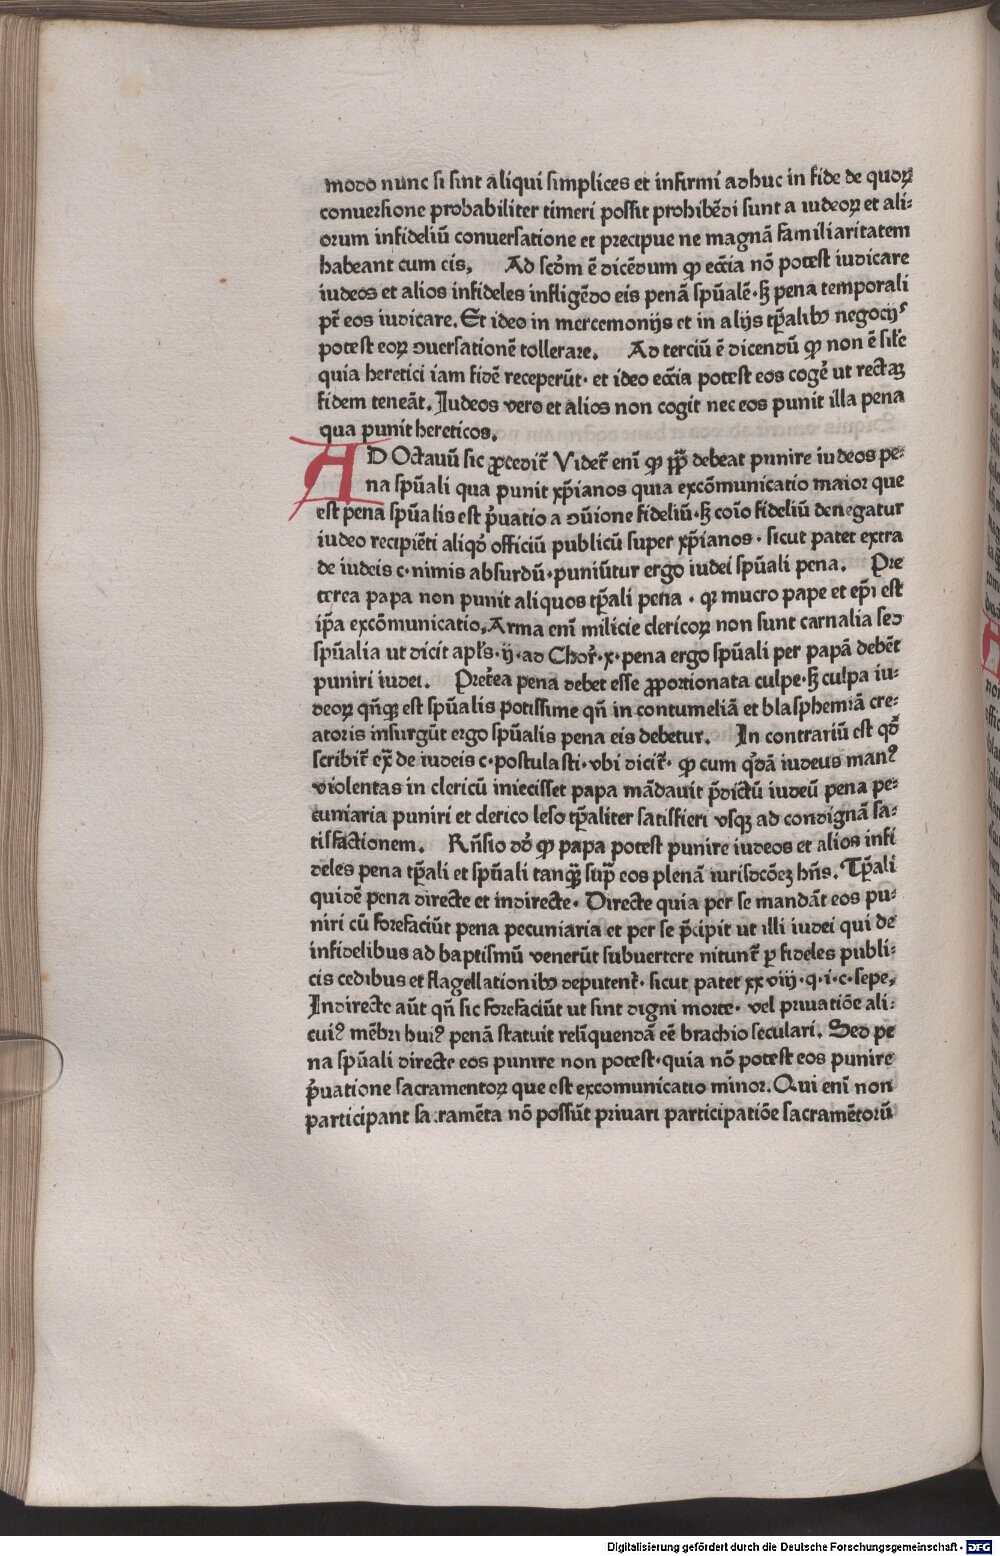 modo nunc si sint aliqui simplices et infirmi adhuc in fide de quoꝝ
conuersione probabiliter timeri possit prohibēdi sunt a iudeoꝝ et ali⸗
orum infideliū conuersatione et precipue ne magnā familiaritatem
habeant cum eis, Ad scd̄m ē dicēdum ꝙ ecc̄ia nō potest iudicare
iudeos et alios infideles infligēdo eis penā sp̄ualē·ꝫ pena temporali
pt̄ eos iudicare. Et ideo in mercemonijs et in alijs tp̄alibꝰ negocijˢ
potest eoꝝ ꝯuersationē tollerare. Ad terciū ē dicendū ꝙ non ē sil̄e
quia heretici iam fidē receperūt· et ideo ecc̄ia potest eos cogē ut rectaꝫ
fidem teneāt. Iudeos vero et alios non cogit nec eos punit illa pena
qua punit hereticos.
AD Octauū sic ꝓcedit̄ Videt̄ enī ꝙ pp̄ debeat punire iudeos pe⸗
na sp̄uali qua punit xp̄ianos quia excōmunicatio maior que
est pena sp̄ualis est p̄uatio a ꝯūione fideliū·ꝫ coīo fideliū denegatur
iudeo recipiēti aliqd̄ officiū publicū super xp̄ianos · sicut patet extra
de iudeis c·nimis absurdū·puniūtur ergo iudei sp̄uali pena. Pre
terea papa non punit aliquos tp̄ali pena · qꝛ mucro pape et ep̄i est
ip̄a excōmunicatio, Arma enī milicie clericoꝝ non sunt carnalia sed
sp̄ualia ut dicit apl̄s·ij·ad Chor̄·x·pena ergo sp̄uali per papā debēt
puniri iudei. Pret̄ea pena debet esse ꝓportionata culpe·ꝫ culpa iu⸗
deoꝝ qn̄qꝫ est sp̄ualis potissime qn̄ in contumeliā et blasphemiā cre⸗
atoris insurgūt ergo sp̄ualis pena eis debetur. In contrariū est qd̄
scribit̄ ex̄ de iudeis c·postulasti·vbi dicit̄· ꝙ cum qd̄ā iudeus manꝰ
violentas in clericū iniecisset papa mādauit p̄dictū iudeū pena pe⸗
cuniaria puniri et clerico leso tp̄aliter satisfieri vsqꝫ ad condignā sa⸗
tisfactionem. Rn̄sio dd̄ ꝙ papa potest punire iudeos et alios infi
deles pena tp̄ali et sp̄uali tanqꝫ̄ sup̄ eos plenā iurisdcōeꝫ hn̄s. Tp̄ali
quidē pena directe et indirecte· Directe quia per se mandāt eos pu⸗
niri cū forefaciūt pena pecuniaria et per se p̄cipit ut illi iudei qui de
infidelibus ad baptismū venerūt subuertere nitunt̄ ꝑ fideles publi⸗
cis cedibus et flagellationibꝰ deputent̄· sicut patet xxviij·q·i·c·sepe,
Indirecte aūt qn̄ sic forefaciūt ut sint digni morte· vel priuatiōe ali⸗
cuiꝰ mēbri huiꝰ penā statuit relīquendā eē brachio seculari. Sed pe
na sp̄uali directe eos punire non potest·quia nō potest eos punire
p̄uatione sacramentoꝝ que est excomunicatio minor. Qui enī non
participant sacramēta nō possūt priuari participatiōe sacramētorū
Digitalisierung gefördert durch die Deutsche Forschungsgemeinschaft - DFG